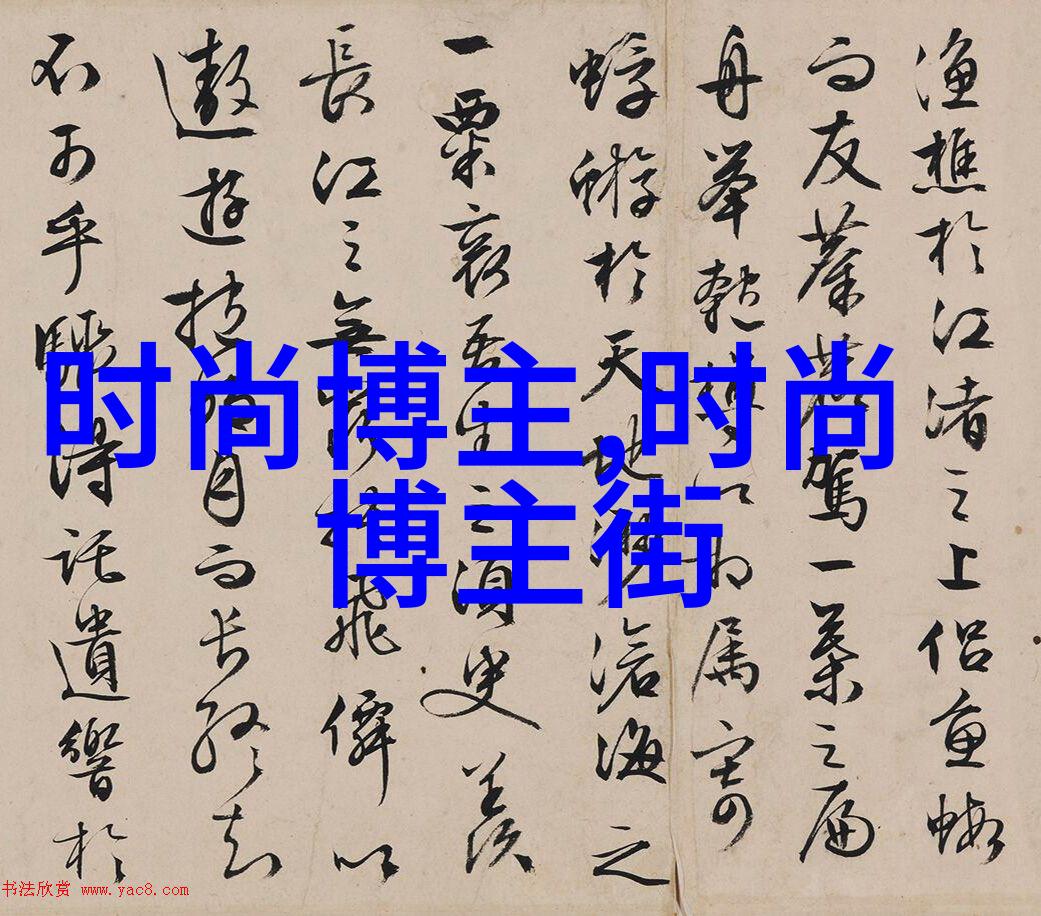 渔樵於江渚之上侣鱼蝦
而友麋鹿驾一葉之扁
舟举匏樽以相属寄
蜉蝣於天地渺滄海之
一粟哀吾生之須臾羡
長江之無窮挾飛僊以
遨遊抱明月而长终知
不可乎驟得託遺響於
时尚博主,时尚
博主街
书法欣赏 www.yac8.com